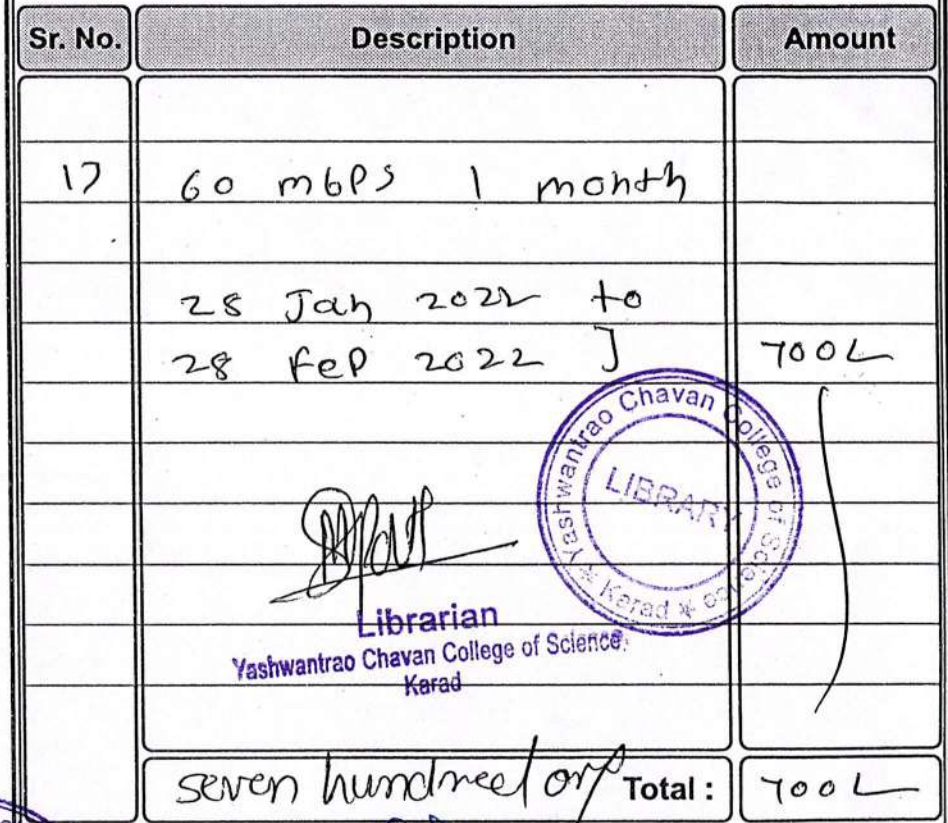 Sr. No. Description Amount
17 60 mbps 1 month
28 Jan 2022 to
28 Feb 2022 700
Yashwantrao Chavan College of Science
Karad
LIBRARY
Librarian
Yashwantrao Chavan College of Science
Karad
seven hundred only Total : 700